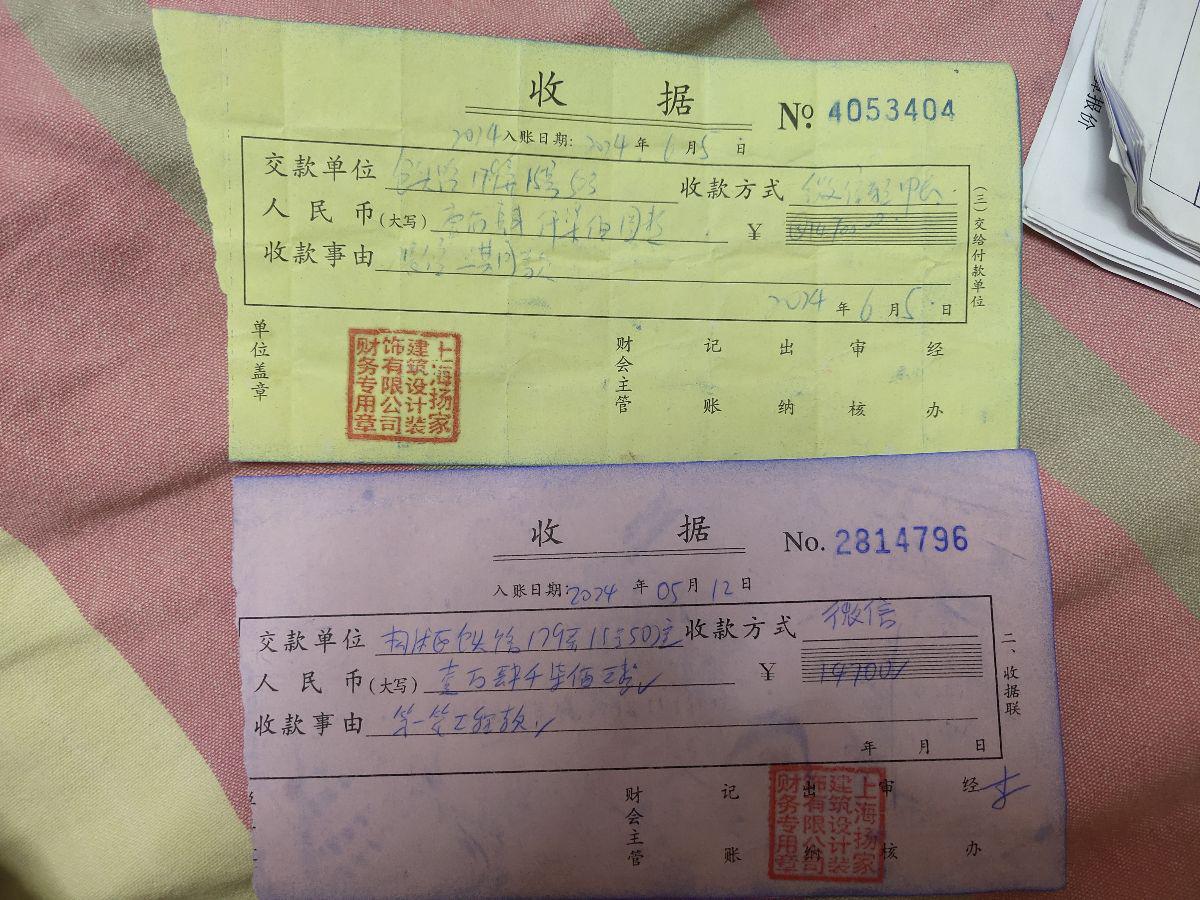 收 据
No. 4053404
2024 入账日期: 2024 年 6 月 5 日
交款单位 179弄15号503 收款方式 微信
人民币(大写) 壹万肆仟柒佰圆整 ¥
收款事由
2024 年 6 月 5 日
(三)交给付款单位
单位盖章
财会主管 记账 出纳 审核 经办
上海扬家建筑设计装饰有限公司财务专用章
报价
收 据
No. 2814796
入账日期: 2024 年 05 月 12 日
交款单位 179弄15号501室 收款方式 微信
人民币(大写) 壹万肆千柒佰 ¥ 14700
收款事由 第一笔工程款
年 月 日
二、收据联
财会主管 记账 出纳 审核 经办
上海扬家建筑设计装饰有限公司财务专用章